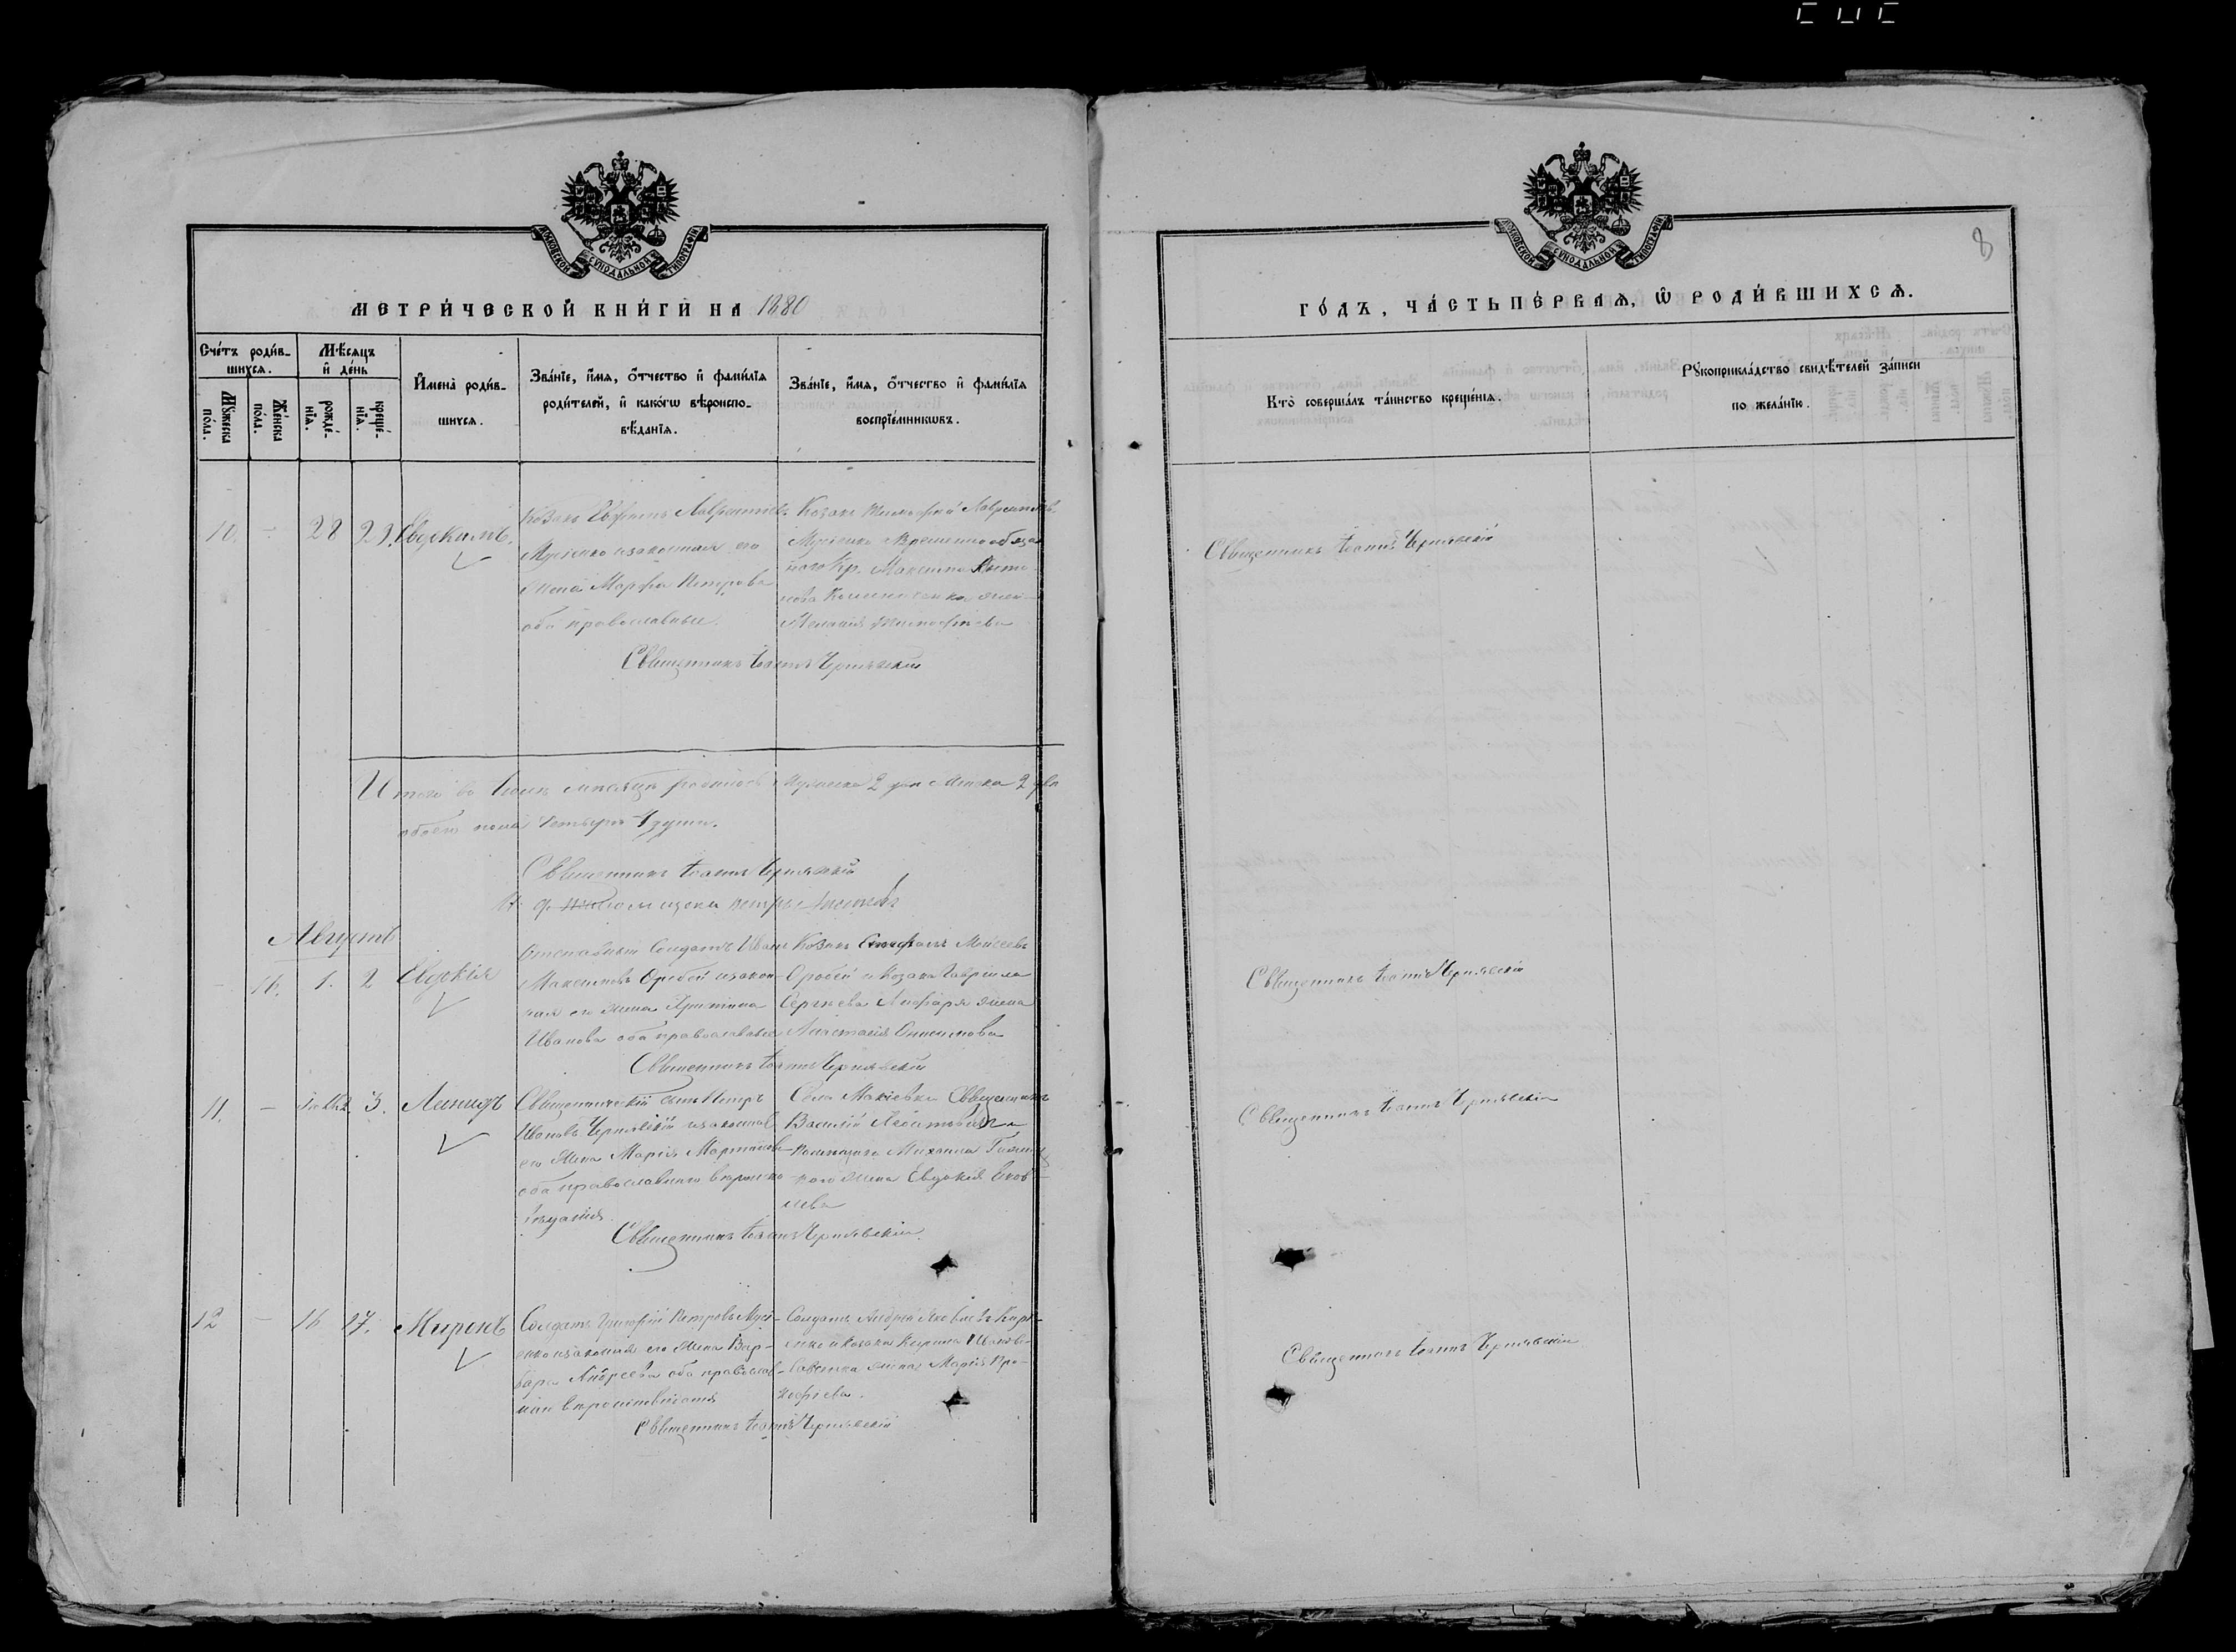 МОСКОВСКОЙ СѴНОДАЛЬНОЙ ТИПОГРАФІИ
МЕТРИ́ЧЕСКОЙ КНИ́ГИ НА 1880
Сче́тъ роди́в-
шихся.
Мѣ́сяцъ
и҆ де́нь
Мꙋ́жеска
по́ла.
Же́нска
по́ла.
рожде́-
нїя.
креще́-
нїя.
И҆мена̀ роди́в-
шихся.
Зва́нїе, и҆́мя, ѻ҆́тчество и҆ фами́лїя
роди́телей, и҆ како́гѡ вѣроиспо-
вѣ́данїя.
Зва́нїе, и҆́мя, ѻ҆́тчество и҆ фами́лїя
воспрїе́мникѡвъ.
10. - 28 29. Евдокимъ.
Козакъ Лаврентіевъ
Мусіенко изаконная его
жена Марфа Петрова
оба православные.
Козакъ Тимофей Лаврентіевъ
Мусіенко Временнообязан
наго Кр. Максима
жен
Меланія Тимофѣева
Священникъ Іоаннъ Чернявскій
Итого въ Іюлѣ мѣсяцѣ родилось Мужеска 2 Женска 2
обоего пола Четыре 4 души.
Священникъ Іоаннъ Чернявскій
Августъ
- 16. 1. 2 Евдокія
Отставный Солдатъ Иванъ
Максимовъ Оробей изакон
ная его жена Христина
Иванова оба православные
Козакъ Моисеевъ
Оробей и Козака Гавріила
Сергѣева жена
Анастасія Онисимова
Священникъ Іоаннъ Чернявскій
11. - 3. Леонидъ
Священническій сынъ Петръ
Ивановъ Чернявскій изаконная
его Жена Марія Мартинова
оба православнаго вѣроиспо
вѣданія
Села Макіевки Священникъ
Василій
Михаила
жена Евдокія Яков
лева
Священникъ Іоаннъ Чернявскій
12 - 16 17. Миронъ
Солдатъ Григорій Петровъ Мусі-
енко изаконная его Жена Вар-
вара Андреева оба православ-
наго вѣроисповѣданія
Солдатъ Андрей Яковлевъ
икозака Кирила Иванова
жена Марія Про-
кофіева.
Священникъ Іоаннъ Чернявскій
МОСКОВСКОЙ СѴНОДАЛЬНОЙ ТИПОГРАФІИ
8
ГО́ДЪ, ЧА́СТЬ ПЕ́РВАЯ, Ѡ҆ РОДИ́ВШИХСЯ.
Кто̀ соверша́лъ та́инство креще́нїя.
Рꙋкоприкла́дство свидѣ́телей за́писи
по жела́нїю.
Священникъ Іоаннъ Чернявскій
Священникъ Іоаннъ Чернявскій
Священникъ Іоаннъ Чернявскій
Священникъ Іоаннъ Чернявскій